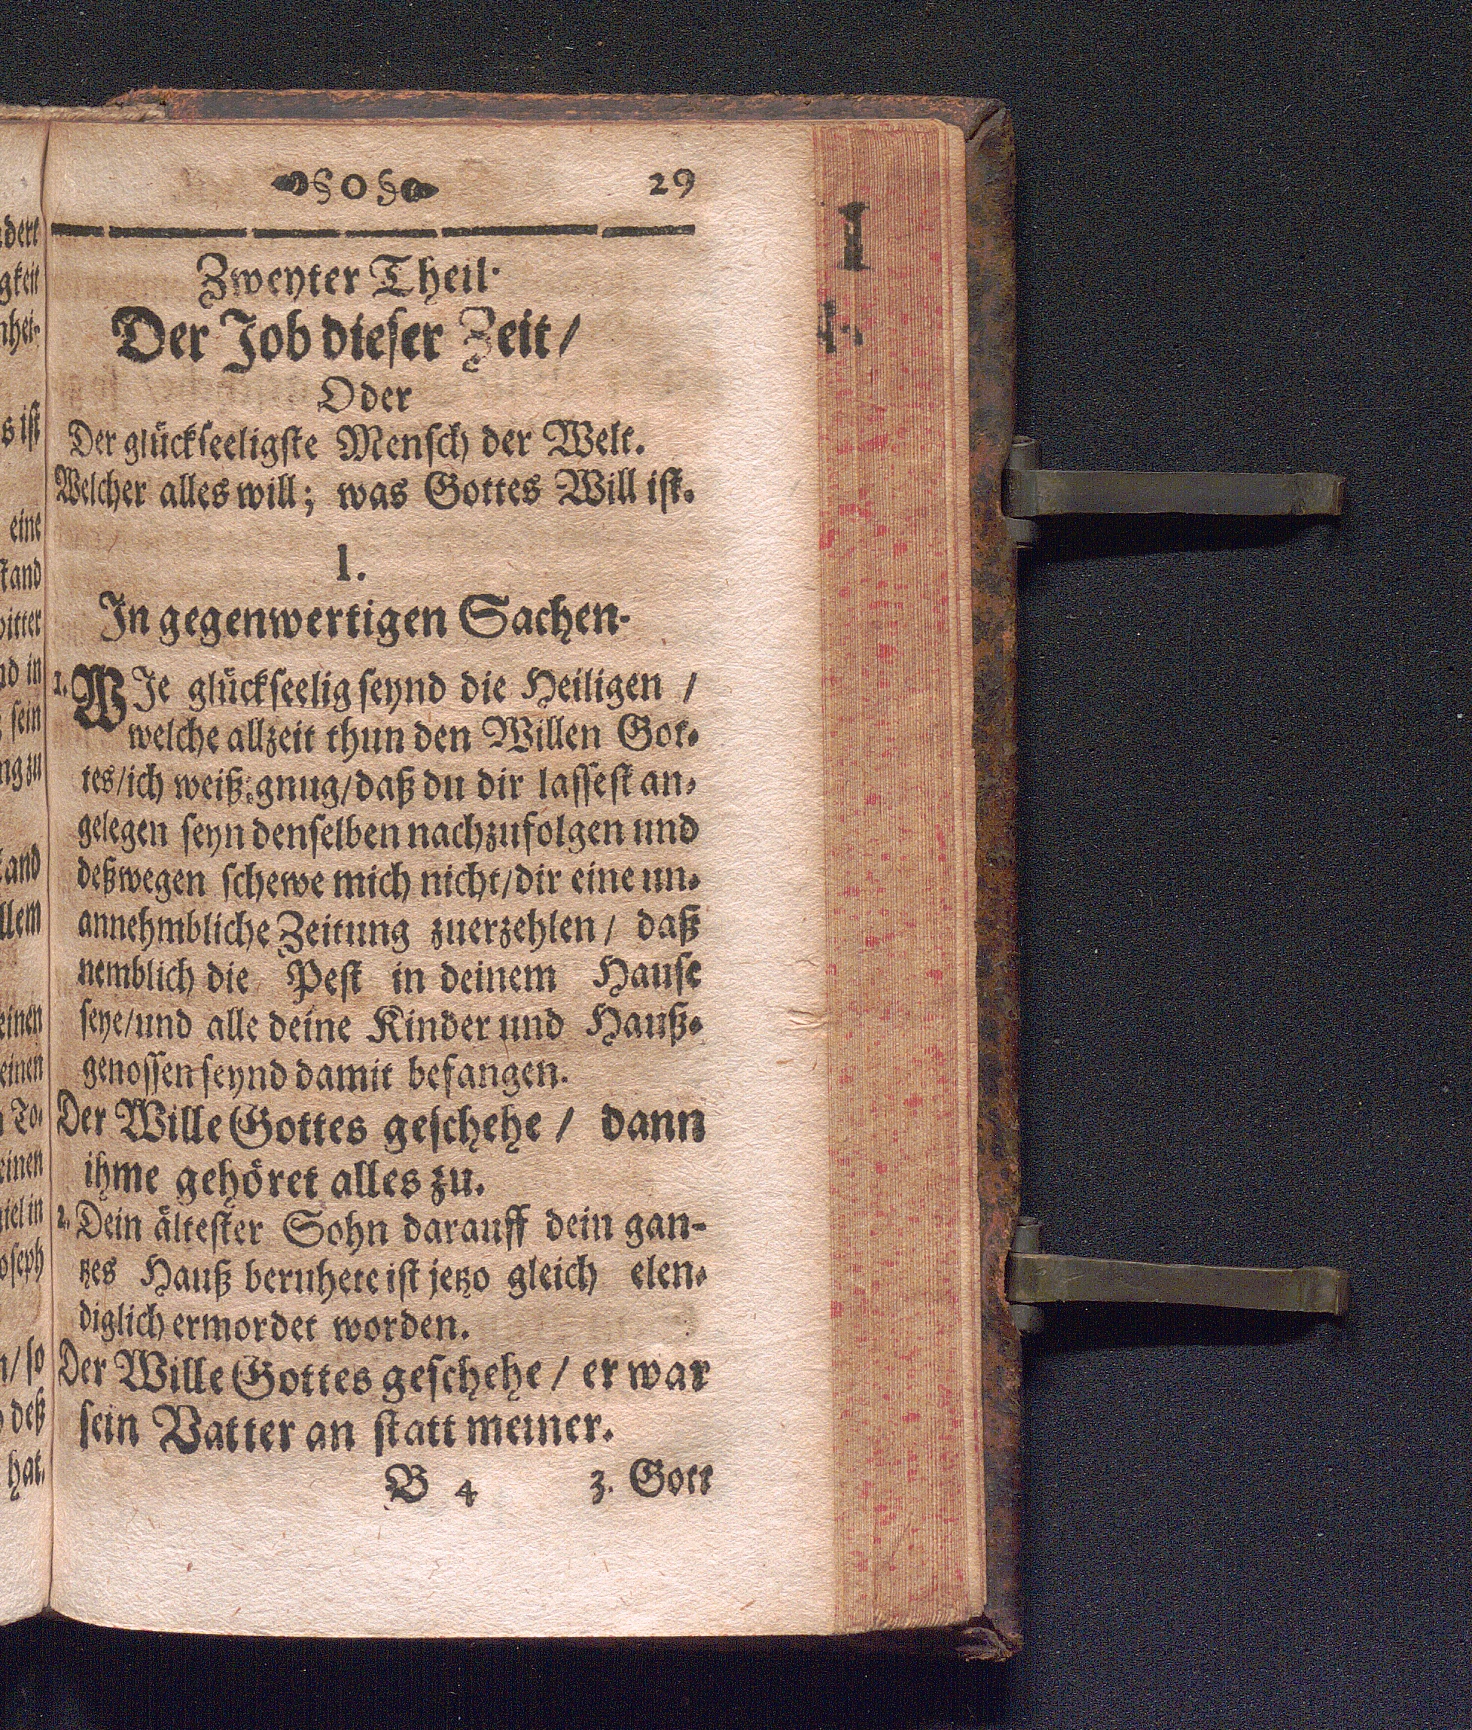 §0§ 29
Zweyter Theil.
Der Job dieser Zeit/
Oder
Der glückseeligste Mensch der Welt.
Welcher alles will; was Gottes Will ist.
I.
In gegenwertigen Sachen.
1. WIe glückseelig seynd die Heiligen /
welche allzeit thun den Willen Got-
tes/ich weiß gnug/daß du dir lassest an-
gelegen seyn denselben nachzufolgen und
deßwegen schewe mich nicht/dir eine un-
annehmbliche Zeitung zuerzehlen / daß
nemblich die Pest in deinem Hause
seye/und alle deine Kinder und Hauß-
genossen seynd damit befangen.
Der Wille Gottes geschehe / dann
ihme gehöret alles zu.
2. Dein ältester Sohn darauff dein gan-
tzes Hauß beruhete ist jetzo gleich elen-
diglich ermordet worden.
Der Wille Gottes geschehe / er war
sein Vatter an statt meiner.
B 4 3. Gott